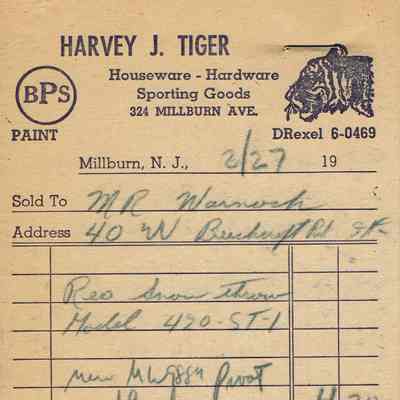 HARVEY J. TIGER
Houseware - Hardware
Sporting Goods
324 MILLBURN AVE.
BPS
PAINT
DRexel 6-0469
Millburn, N. J., 2/27 19
Sold To MR Warnock
Address 40 W Beechcroft Rd
Reo Snow throw
Model 420-ST-1
new pivot